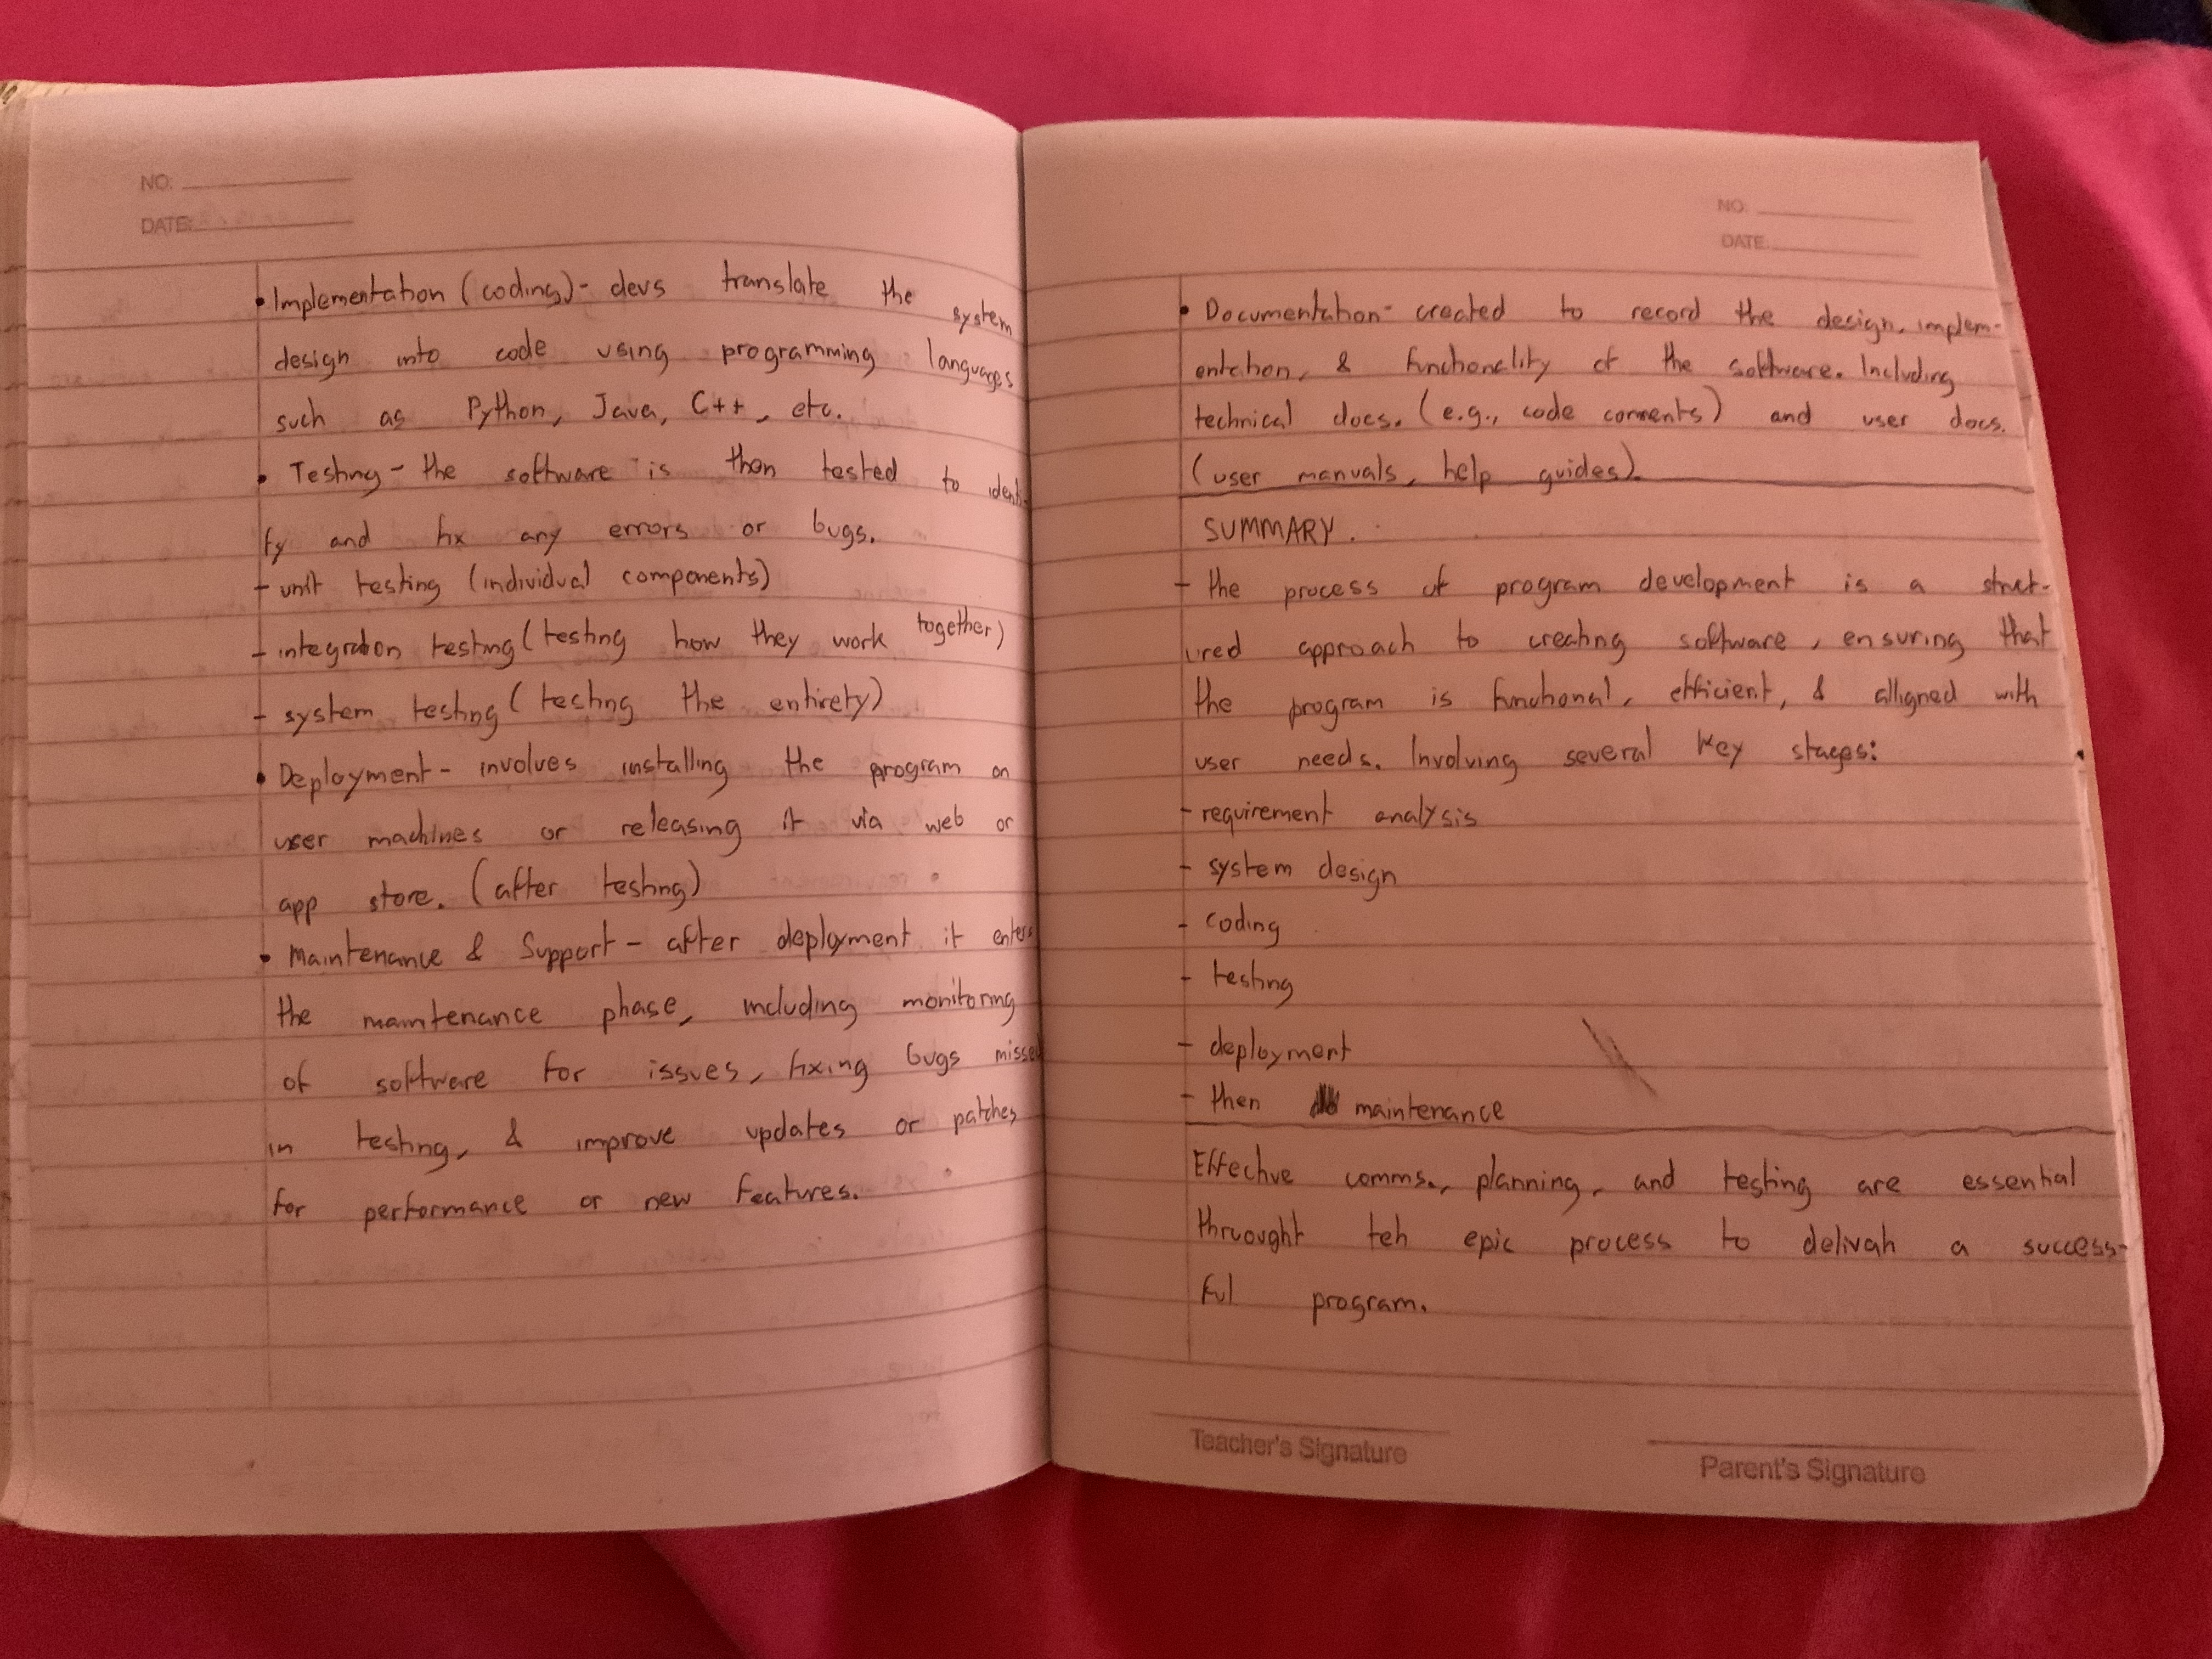 NO:
DATE:
• Implementation (coding)- devs translate the system
design into code using programming languages
such as Python, Java, C++, etc.
• Testing - the software is then tested to identi-
fy and fix any errors or bugs.
- unit testing (individual components)
- integration testing (testing how they work together)
- system testing (testing the entirety)
• Deployment - involves installing the program on
user machines or releasing it via web or
app store. (after testing)
• Maintenance & Support - after deployment it enters
the maintenance phase, including monitoring
of software for issues, fixing bugs missed
in testing, & improve updates or patches
for performance or new features.
NO:
DATE:
• Documentation- created to record the design, implem-
entation, & functionality of the software. Including
technical docs. (e.g., code coments) and user docs.
(user manuals, help guides).
SUMMARY.
- the process of program development is a struct-
ured approach to creating software, ensuring that
the program is functional, efficient, & alligned with
user needs. Involving several key stages:
- requirement analysis
- system design
- coding
- testing
- deployment
- then maintenance
Effective comms., planning, and testing are essential
thruought teh epic process to delivah a success-
ful program.
Teacher's Signature
Parent's Signature